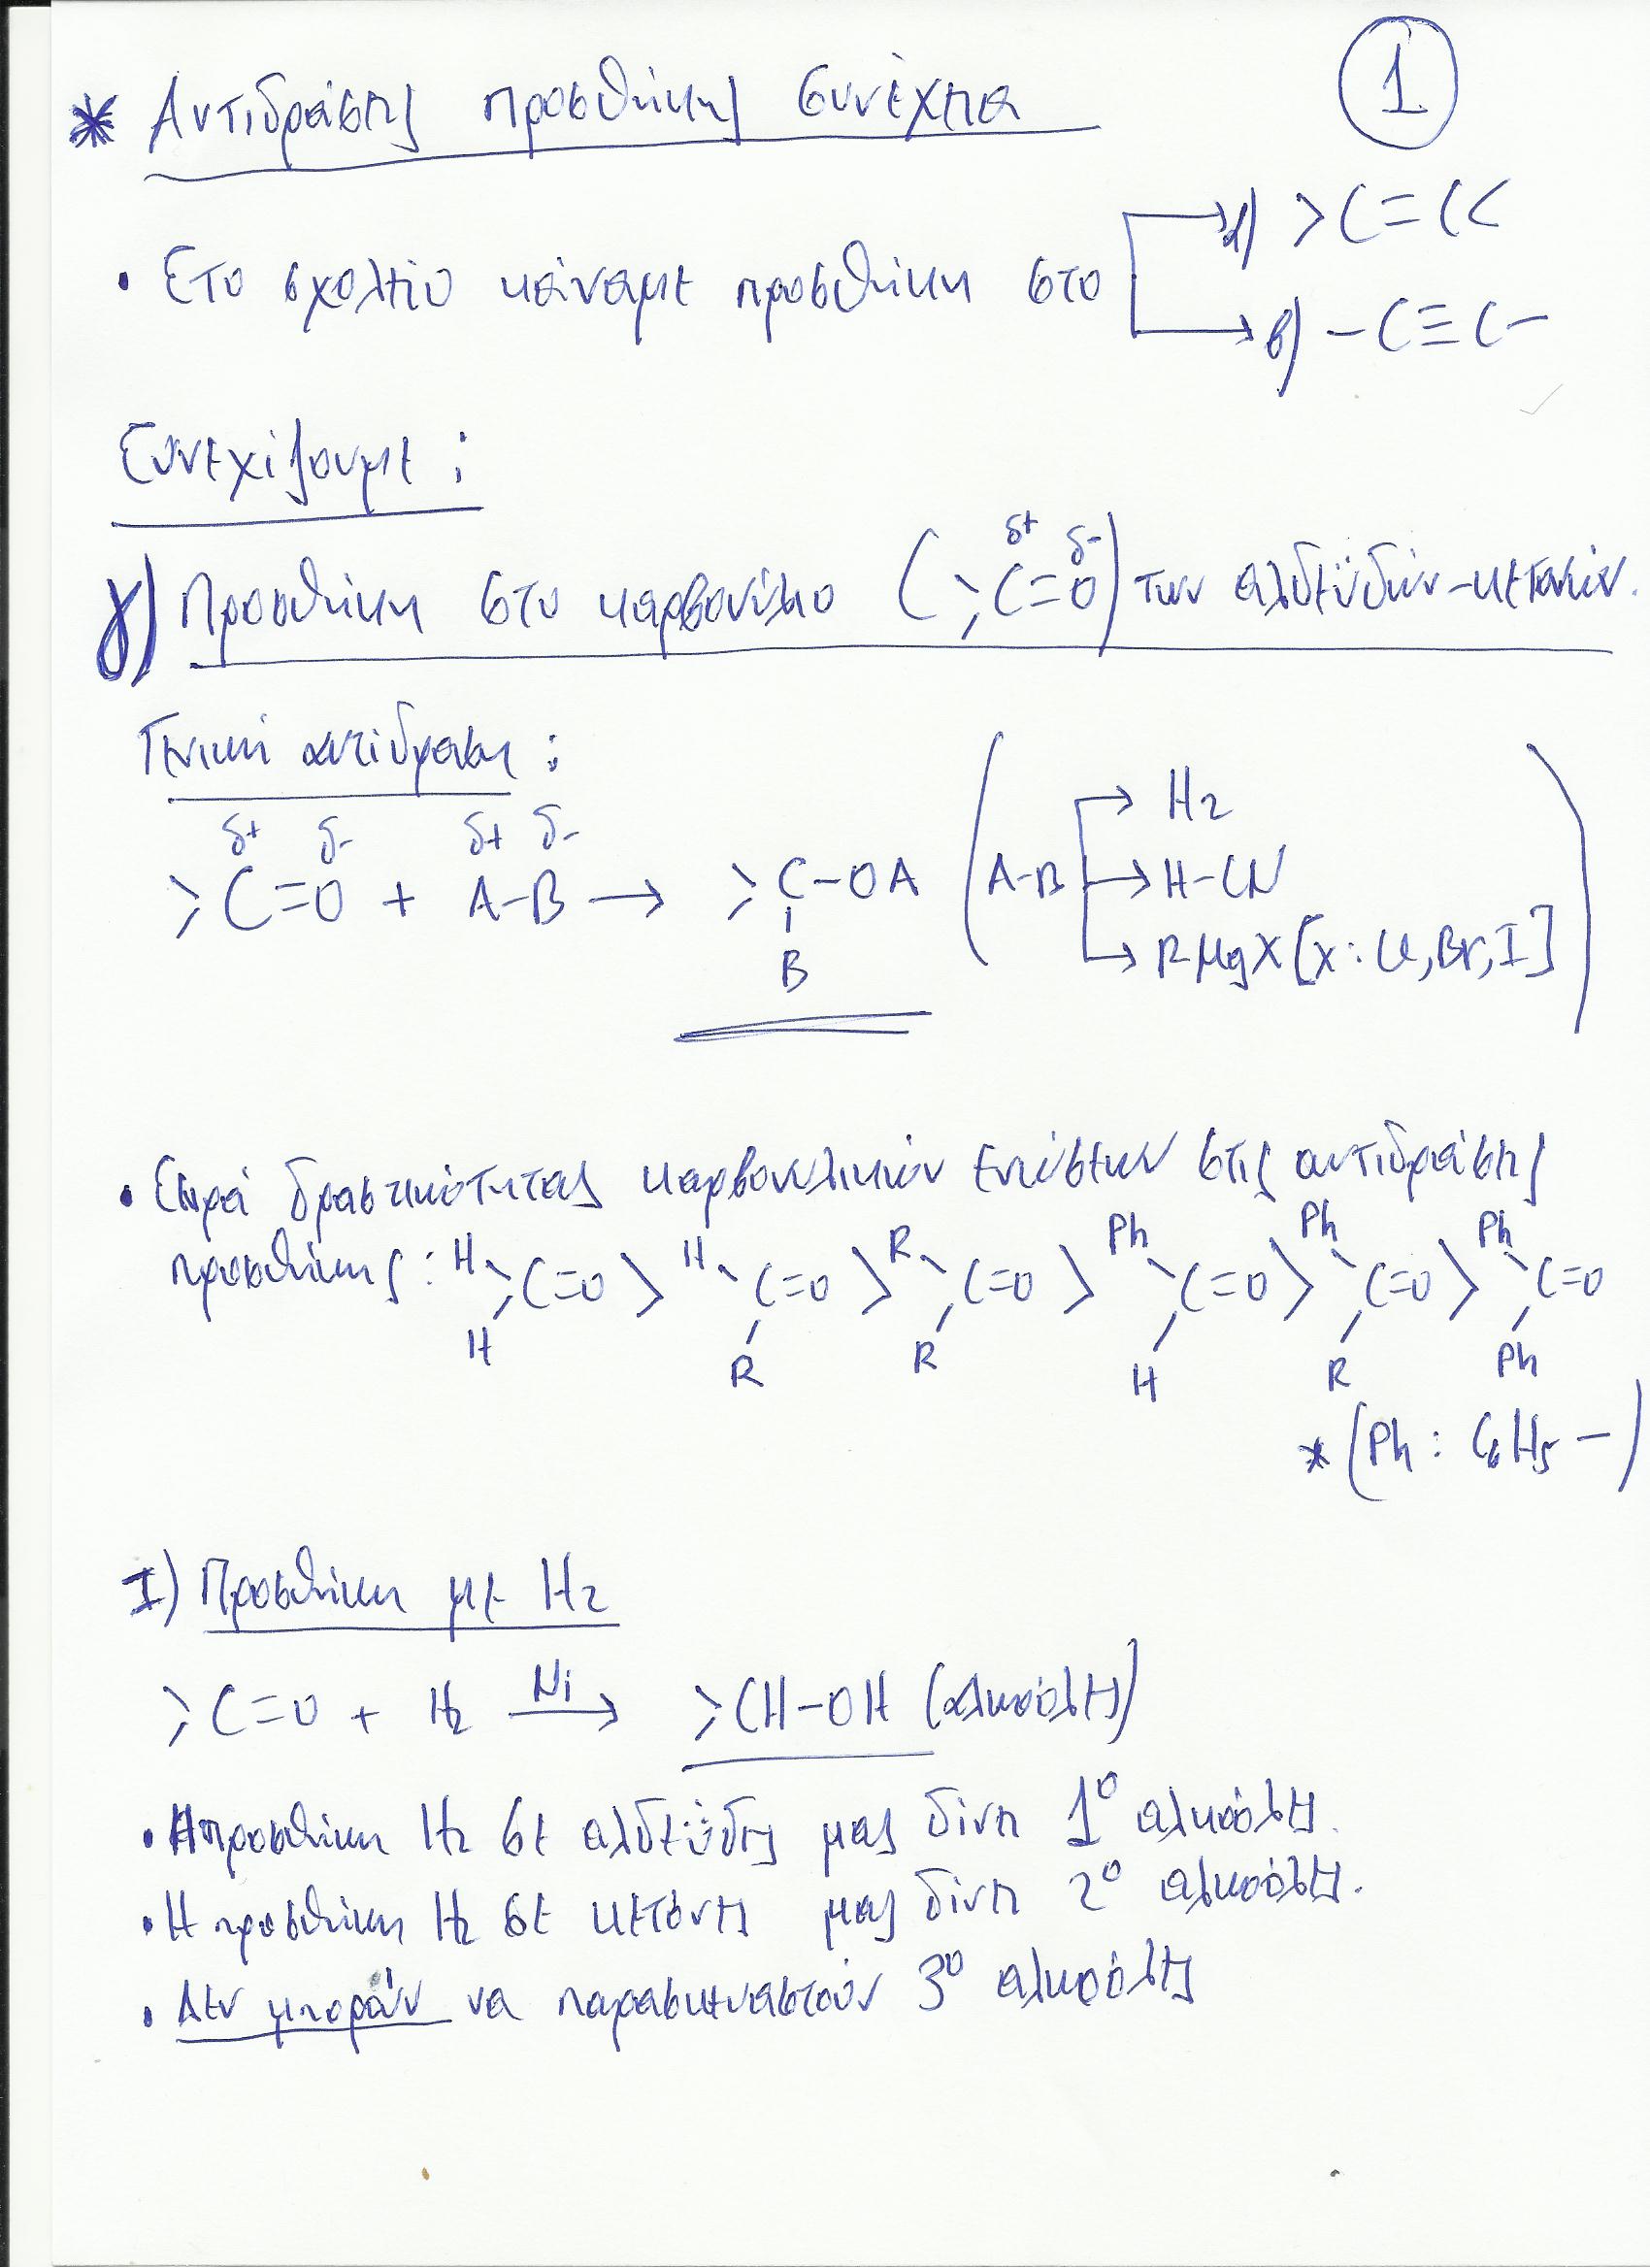 1
* Αντιδράσεις προσθήκης συνέχεια
• Στο σχολείο κάναμε προσθήκη στο α) >C=C<
β) –C≡C–
Συνεχίζουμε :
γ) Προσθήκη στο καρβονύλιο (>Cδ+=Oδ-) των αλδεϋδών-κετονών.
Γενική αντίδραση :
δ+ δ- δ+ δ-
>C=O + A-B → >C-OA (A-B → H2
B → H-CN
→ RMgX [X: Cl, Br, I])
• Σειρά δραστικότητας καρβονυλικών ενώσεων στις αντιδράσεις
προσθήκης : H H R Ph Ph Ph
>C=O > C=O > C=O > C=O > C=O > C=O
H R R H R Ph
* (Ph : C6H5 –)
I) Προσθήκη με H2
>C=O + H2 Ni → >CH-OH (αλκοόλη)
• Η προσθήκη H2 σε αλδεΰδη μας δίνει 1° αλκοόλη.
• Η προσθήκη H2 σε κετόνη μας δίνει 2° αλκοόλη.
• Δεν μπορούν να παρασκευαστούν 3° αλκοόλες